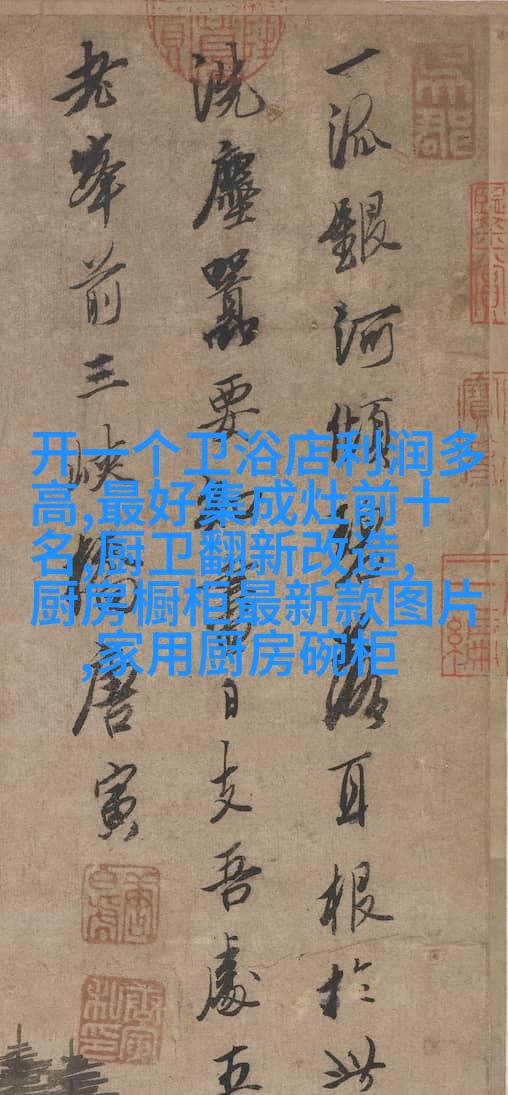 一派銀河傾碧落耳根於此
洗塵囂要知盡日支吾處五
老峯前三峽橋唐寅
开一个卫浴店利润多
高,最好集成灶前十
名,厨卫翻新改造,
厨房橱柜最新款图片
,家用厨房碗柜